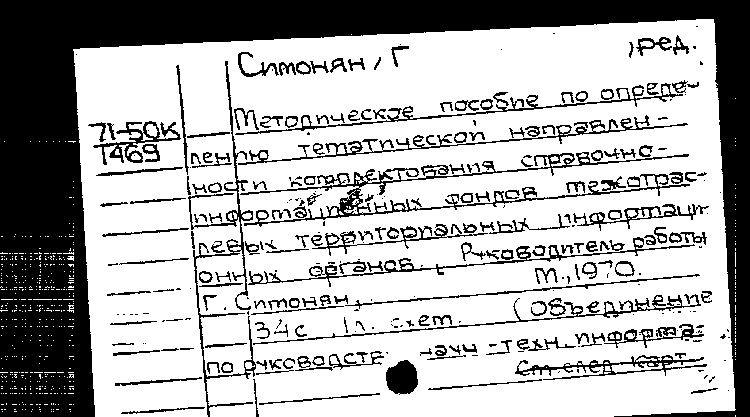 Симонян, Г , ред.
71-50К
1469
Методическое пособие по опреде-
лению тематической направлен-
ности комплектования справочно-
информационных фондов межотрас-
левых территориальных информаци-
онных органов. Руководитель работы
Г. Симонян, М., 1970.
34с, 1л. схем. (Объединение
по руководств научн-техн. информа-
См след карт